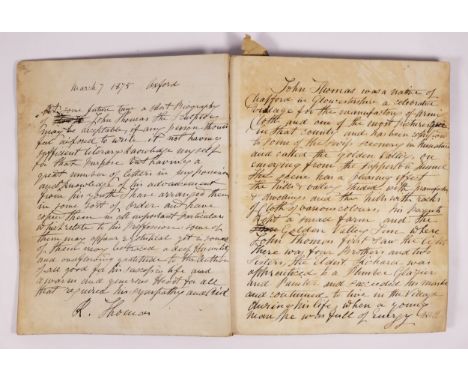 March 7 1875 Oxford
At some future time a short Biography
of John Thomas the Sculptor
may be acceptable, if any person should
feel disposed to write it. Not having
sufficient literary knowledge myself
for that purpose but having a
great number of letters in my possession
and knowledge of his advancement
from his youth I have arranged them
in some sort of order and have
copied them in all important particulars
which relate to his Profession some of
them may appear of trivial yet a sense
of them may
and everlasting gratitude to the Author
of all good for his success in life and
a warm and generous heart for all
that required his sympathy and aid
R. Thomas
John Thomas was a native of
Chalford in Gloucestershire a celebrated
village for the manufactory of
cloth and one of the most picturesque
in that county and has been compared
to some of the Swiss scenery in miniature
and called the golden valley. On
emerging from the Sapperton tunnel
the scene has a pleasing effect
the hills & valley studded with
& dwellings and the hills with racks
of cloth of various colours. His parents
kept a small farm and the
Golden Valley Inn where
John Thomas first saw the light
there was four Brothers and two
Sisters, the eldest Richard was
apprenticed to a Plumber Glazier
and Painter and succeeded his master
and continued to live in the village
during his life, when a young
man he was full of energy and